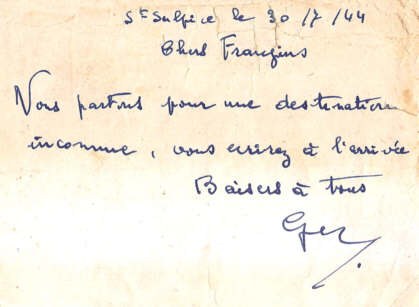 St Sulpice le 30/7/44
Chers Frangins
Nous partons pour une destination
inconnue, vous écrirez à l'arrivée
Baisers à tous
Ger